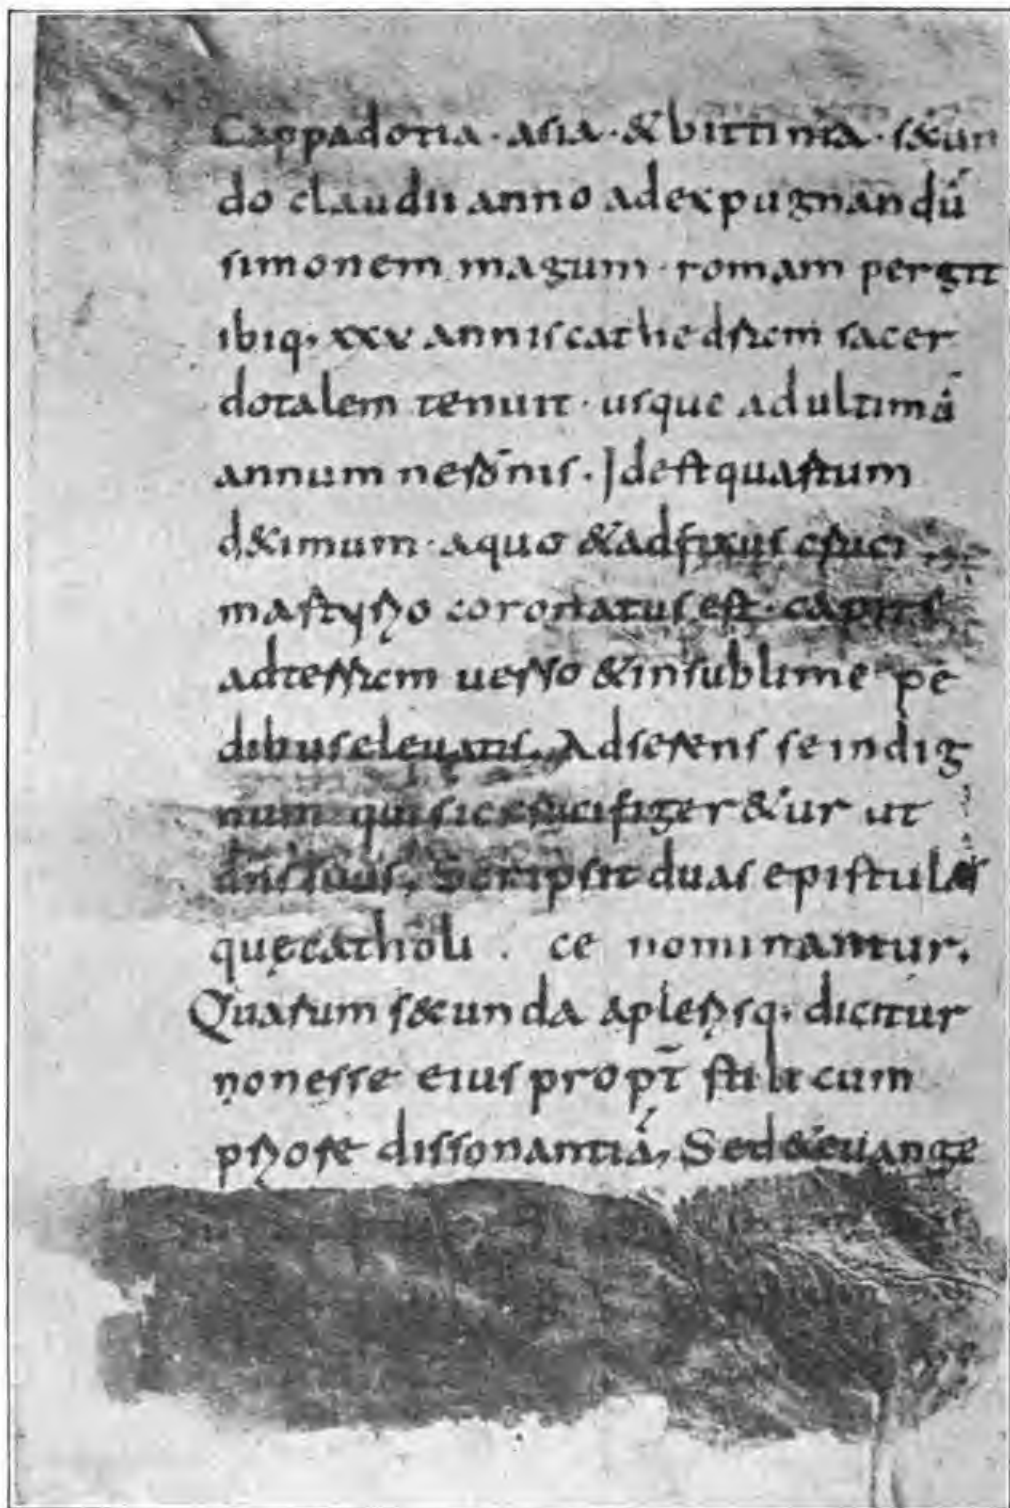 Cappadotia · asia · & bittinia · s&cun
do claudii anno adexpugnandū
simonem magum · romam pergit
ibiq, xxv annis cathedram sacer
dotalem tenuit · usque ad ultimā
annum neronis · Idest quartum
d&imum · aquo & adfixus cruci
martyrio coronatus est · capite
adterram uerso & insublime pe
dibus eleuatis. Adserens se indig
num qui sic crucifiger&ur ut
dns suus, Scripsit duas epistulas
quę catholi . ce nominantur.
Quarum s&cunda aplerisq, dicitur
nonesse eius propt̄ stili cum
priore dissonantiā, Sed & euange